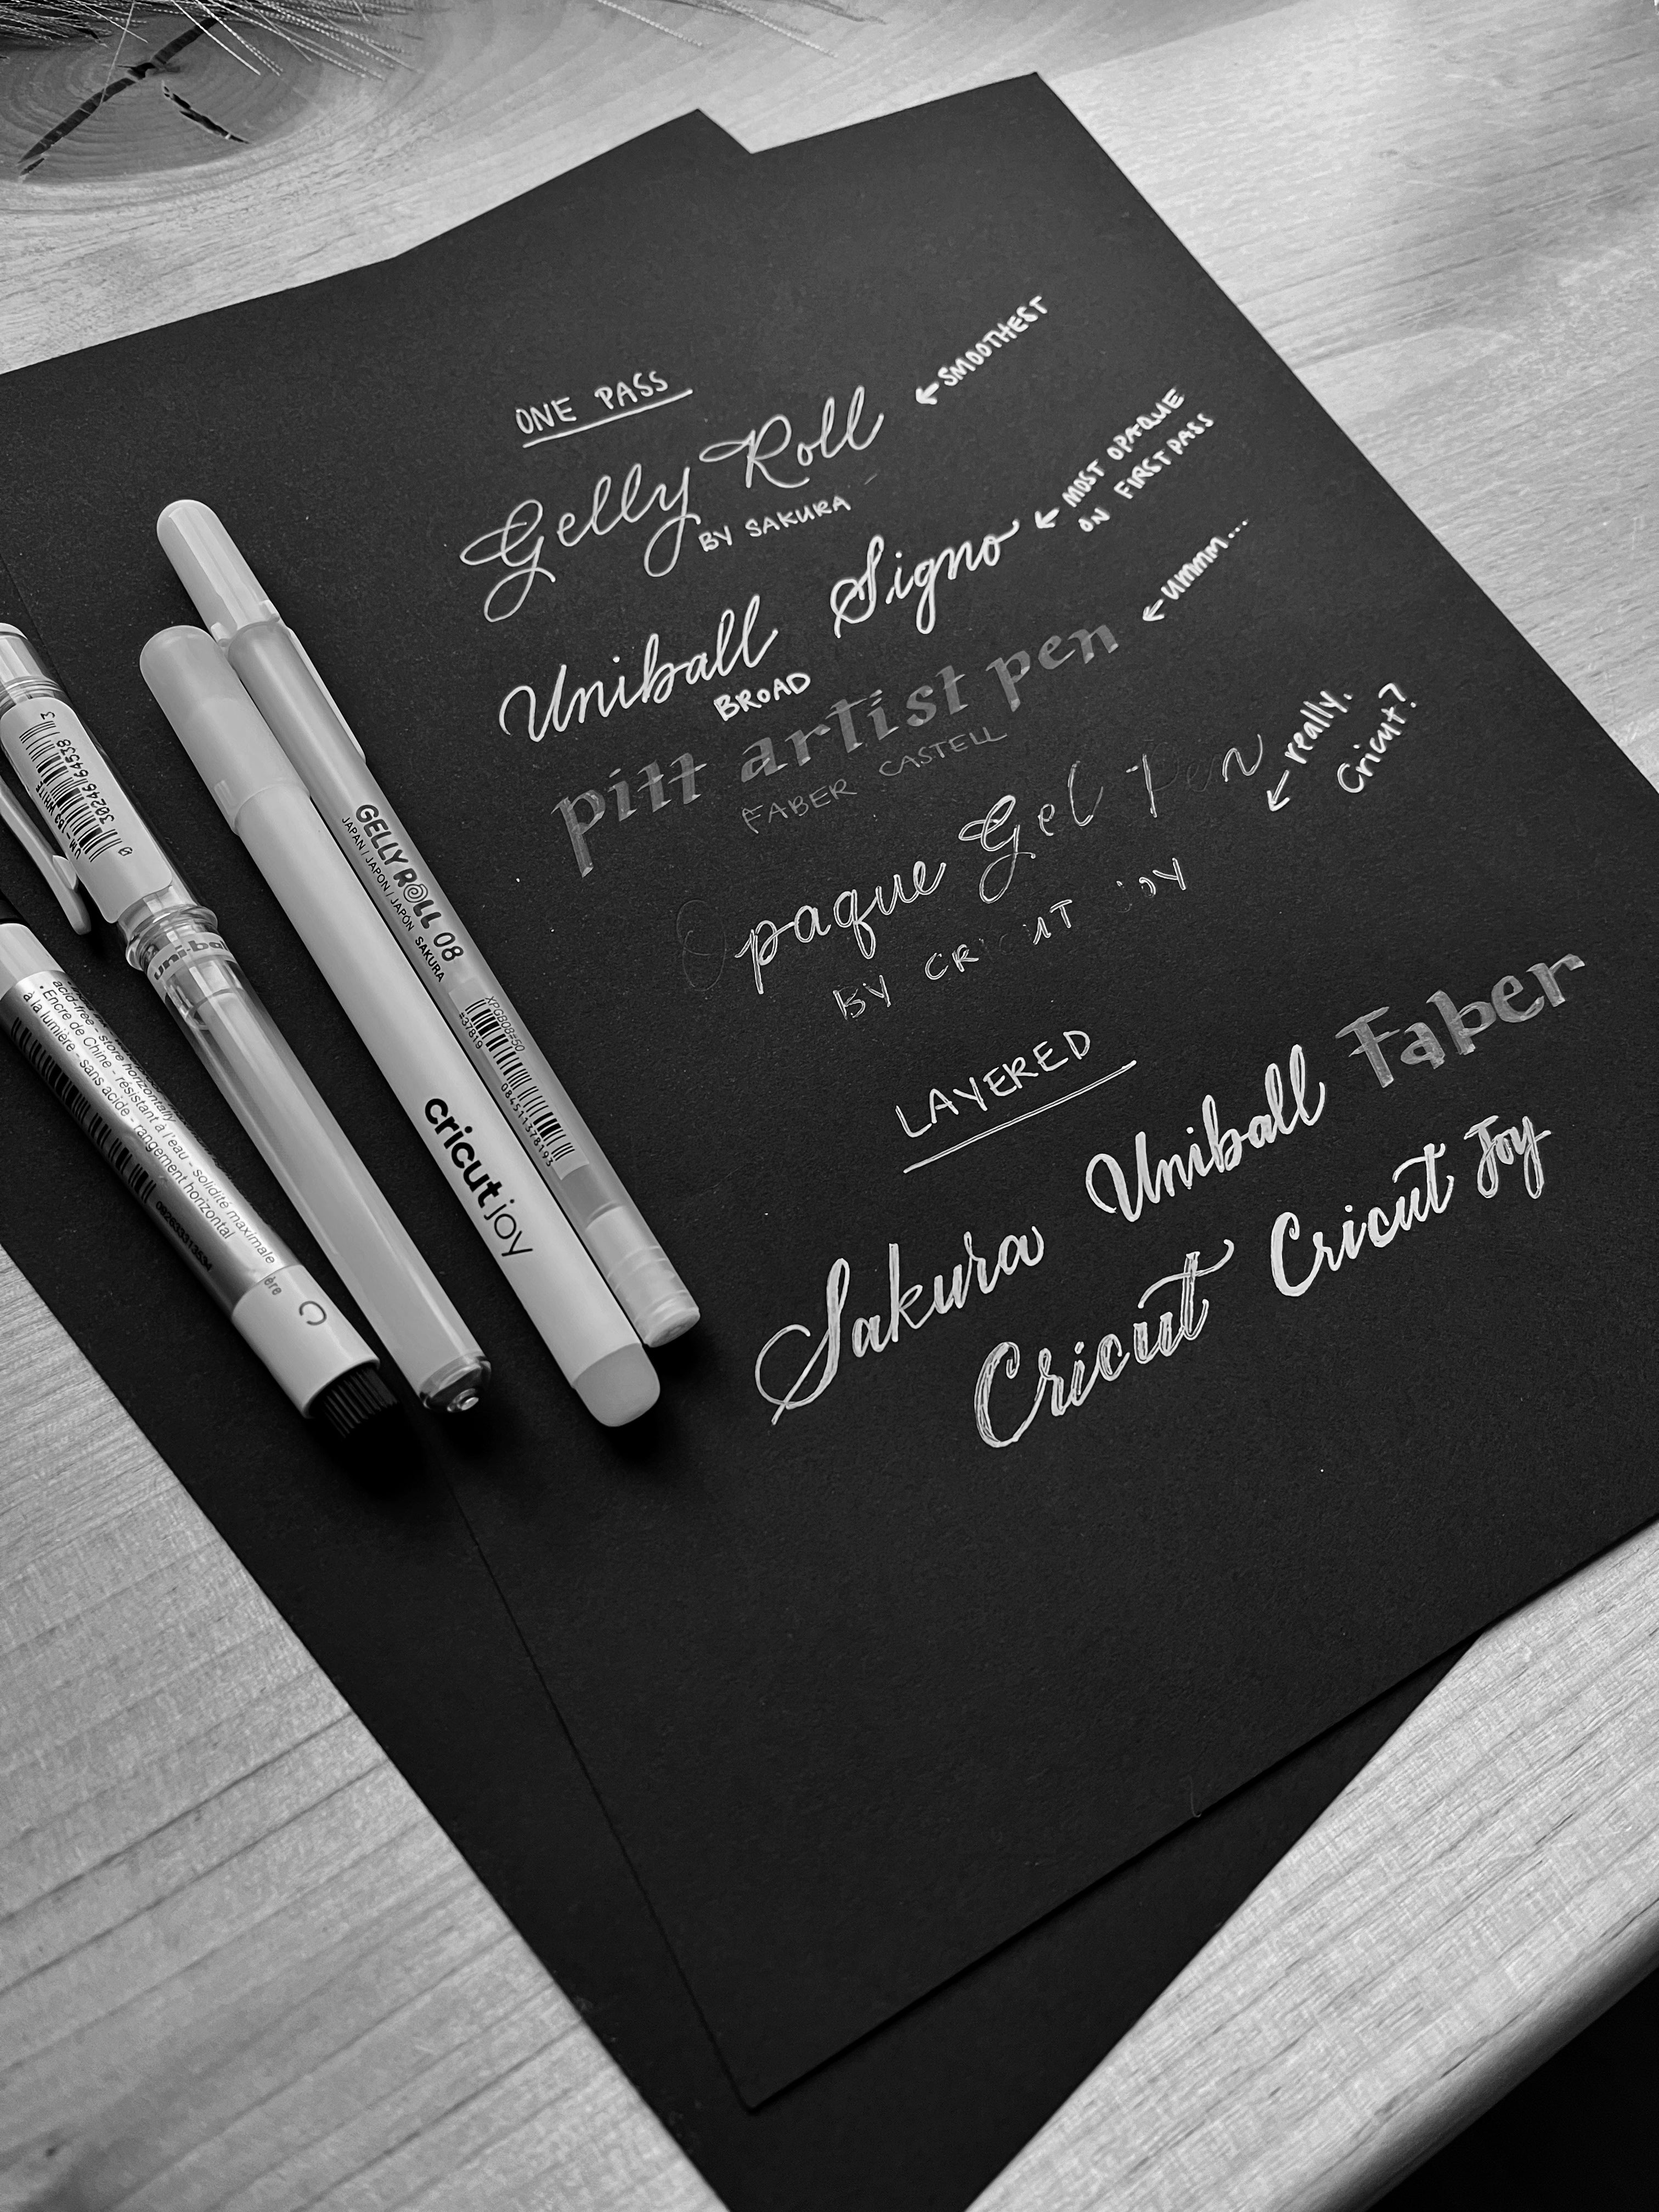 ONE PASS
Gelly Roll
BY SAKURA
← SMOOTHEST
Uniball Signo
BROAD
← MOST OPAQUE
ON FIRST PASS
pitt artist pen
FABER CASTELL
← ummm...
Opaque Gel Pen
BY CRICUT JOY
← really,
Cricut?
LAYERED
Sakura Uniball Faber
Cricut Cricut Joy
GELLY ROLL 08
JAPAN / JAPON / JAPÓN SAKURA
XPGB08#50
#37819
084511378193
cricut joy
UM-153 WHITE
0 30246 64538 3
uni-ba
acid-free - store horizontally
Encre de Chine - résistant à l'eau - solidité maximale
à la lumière - sans acide - rangement horizontal
ère
C